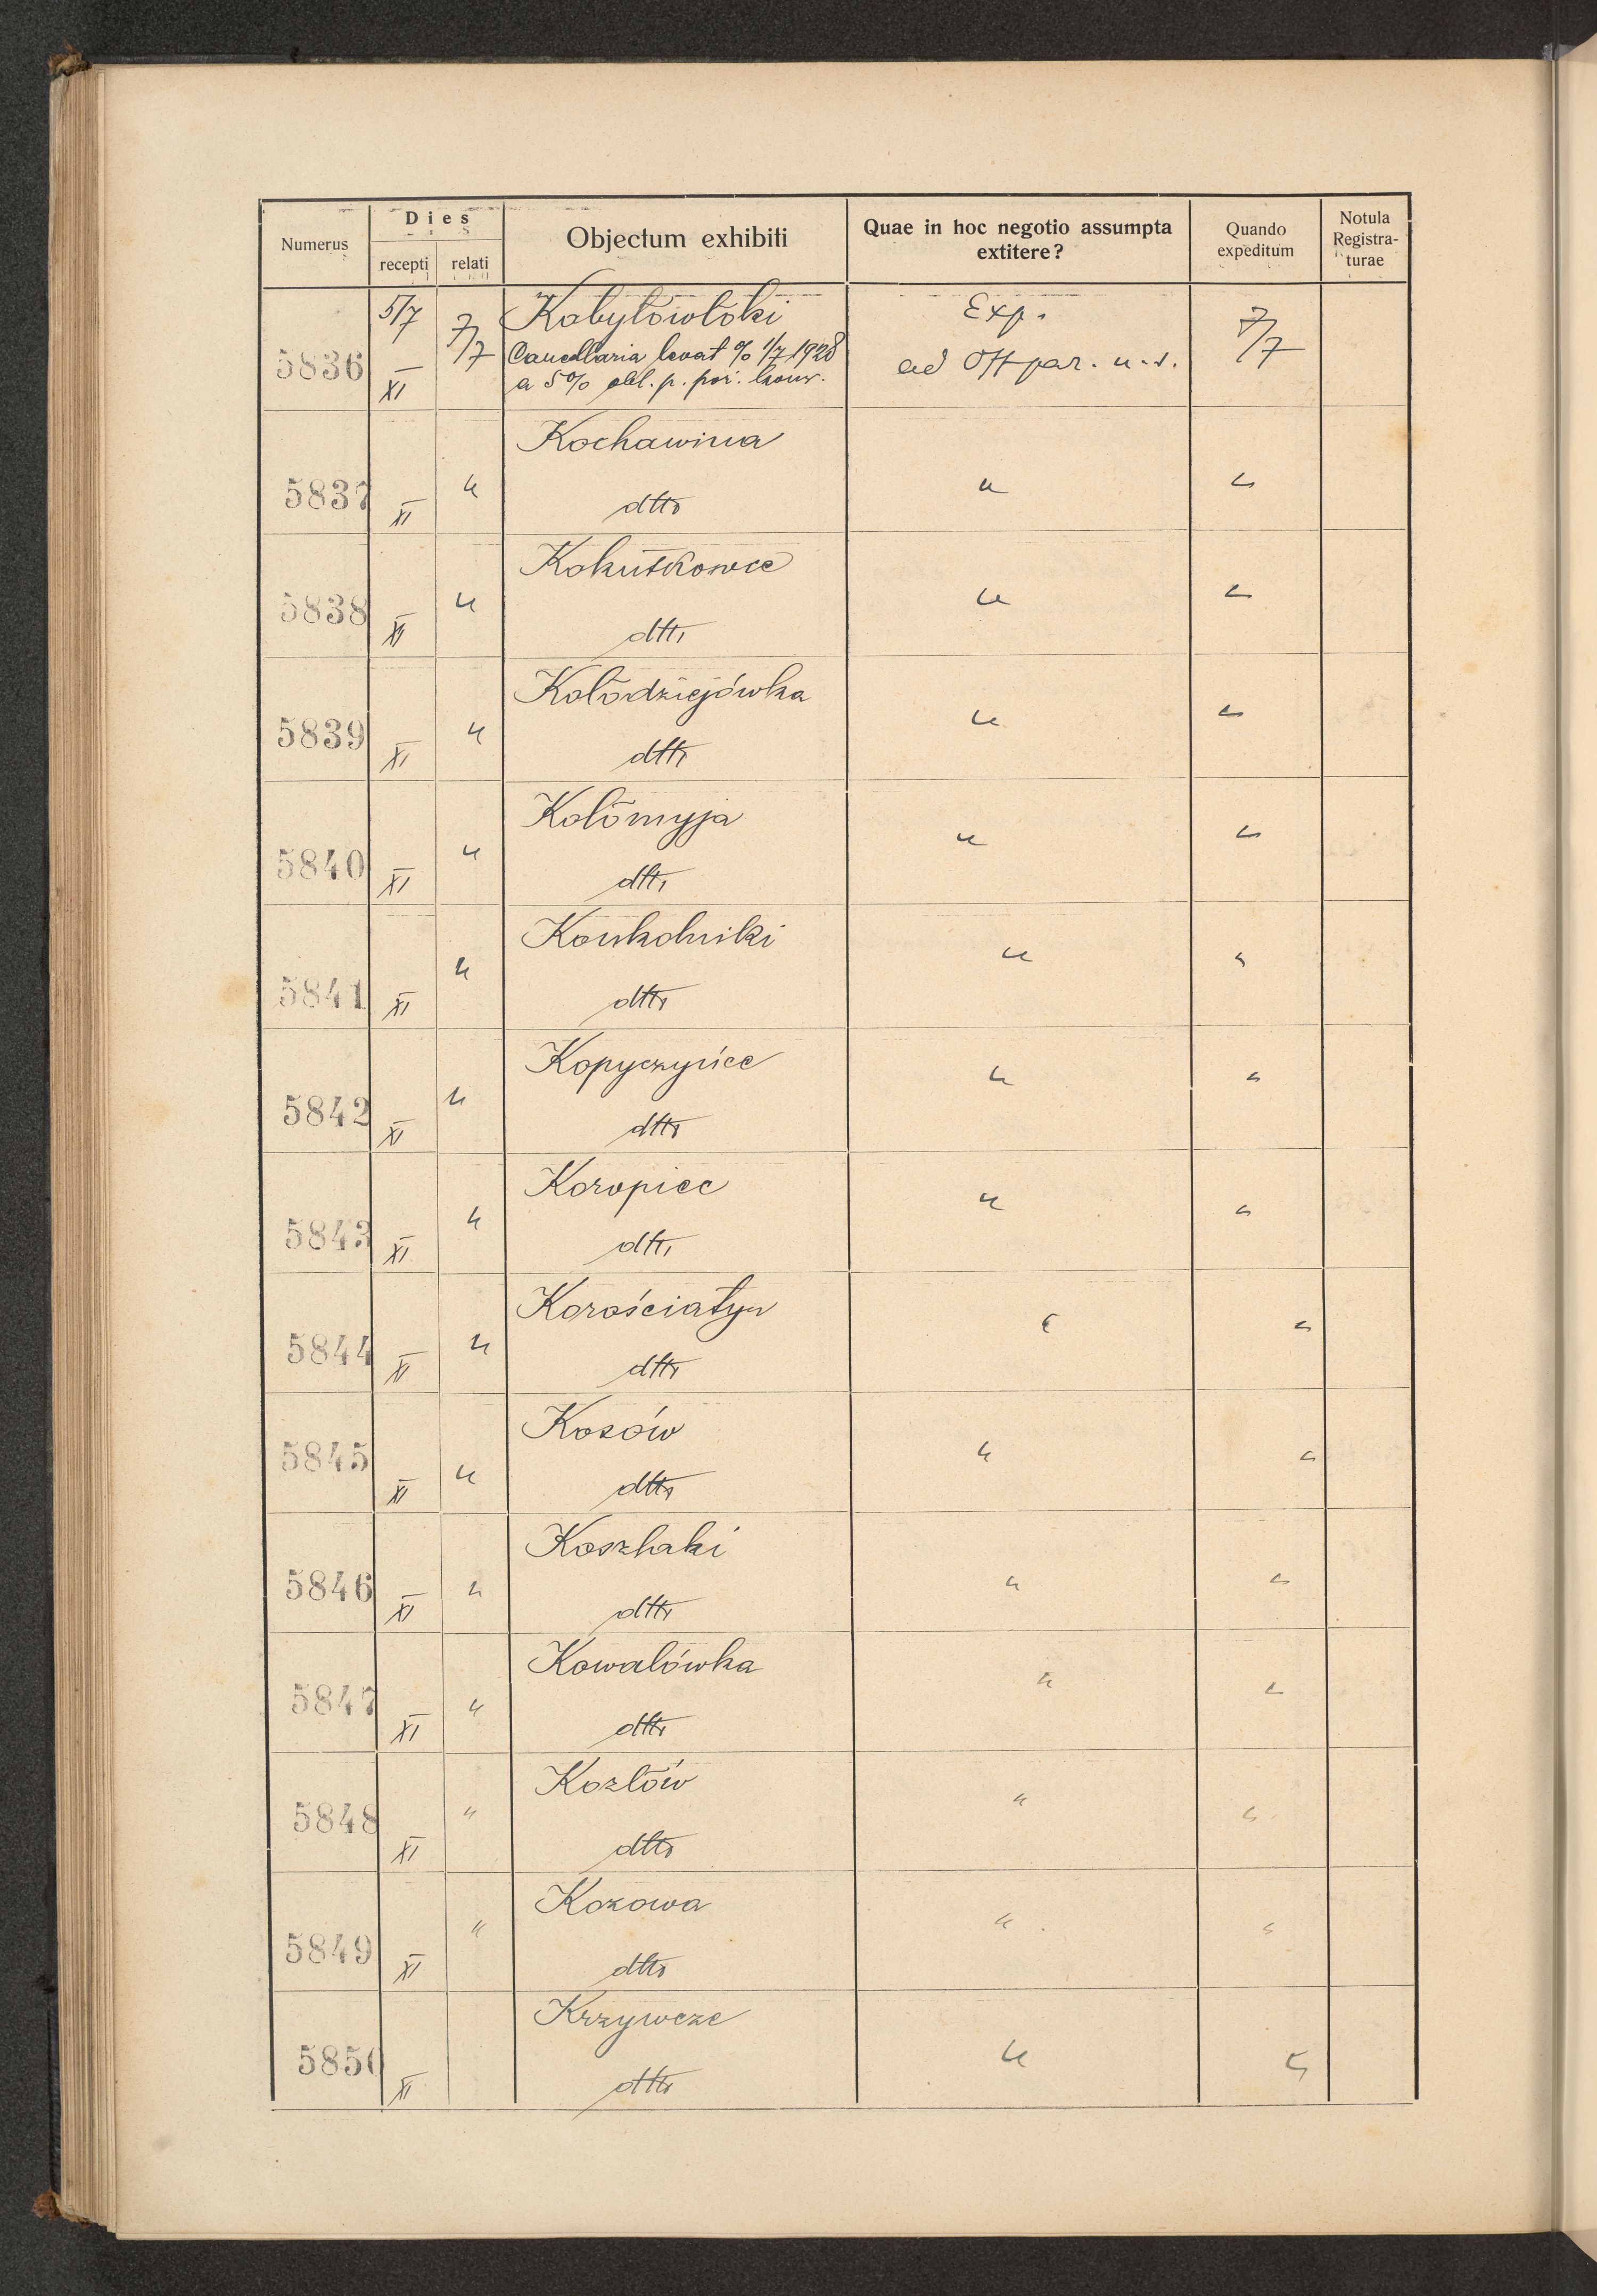 Numerus Dies recepti relati Objectum exhibiti Quae in hoc negotio assumpta extitere? Quando expeditum Notula Registra-turae
5/7 Kobyłowłoki Exp.
5836 XI 7/7 Cancellaria levat % 1/7 1928 ad Off par. u.s. 7/7
a 5% obl. p. poż. konw.
Kochawina
5837 XI " dtto " "
Kokutkowce
5838 XI " dtto " "
Kołodziejówka
5839 XI " dtto " "
Kołomyja
5840 XI " dtto " "
Konkolniki
5841 XI " dtto " "
Kopyczyńce
5842 XI " dtto " "
Koropiec
5843 XI " dtto " "
Korościatyn
5844 XI " dtto " "
Kosów
5845 XI " dtto " "
Koszlaki
5846 XI " dtto " "
Kowalówka
5847 XI " dtto " "
Kozłów
5848 XI " dtto " "
Kozowa
5849 XI " dtto " "
Krzywcze
5850 XI dtto " "